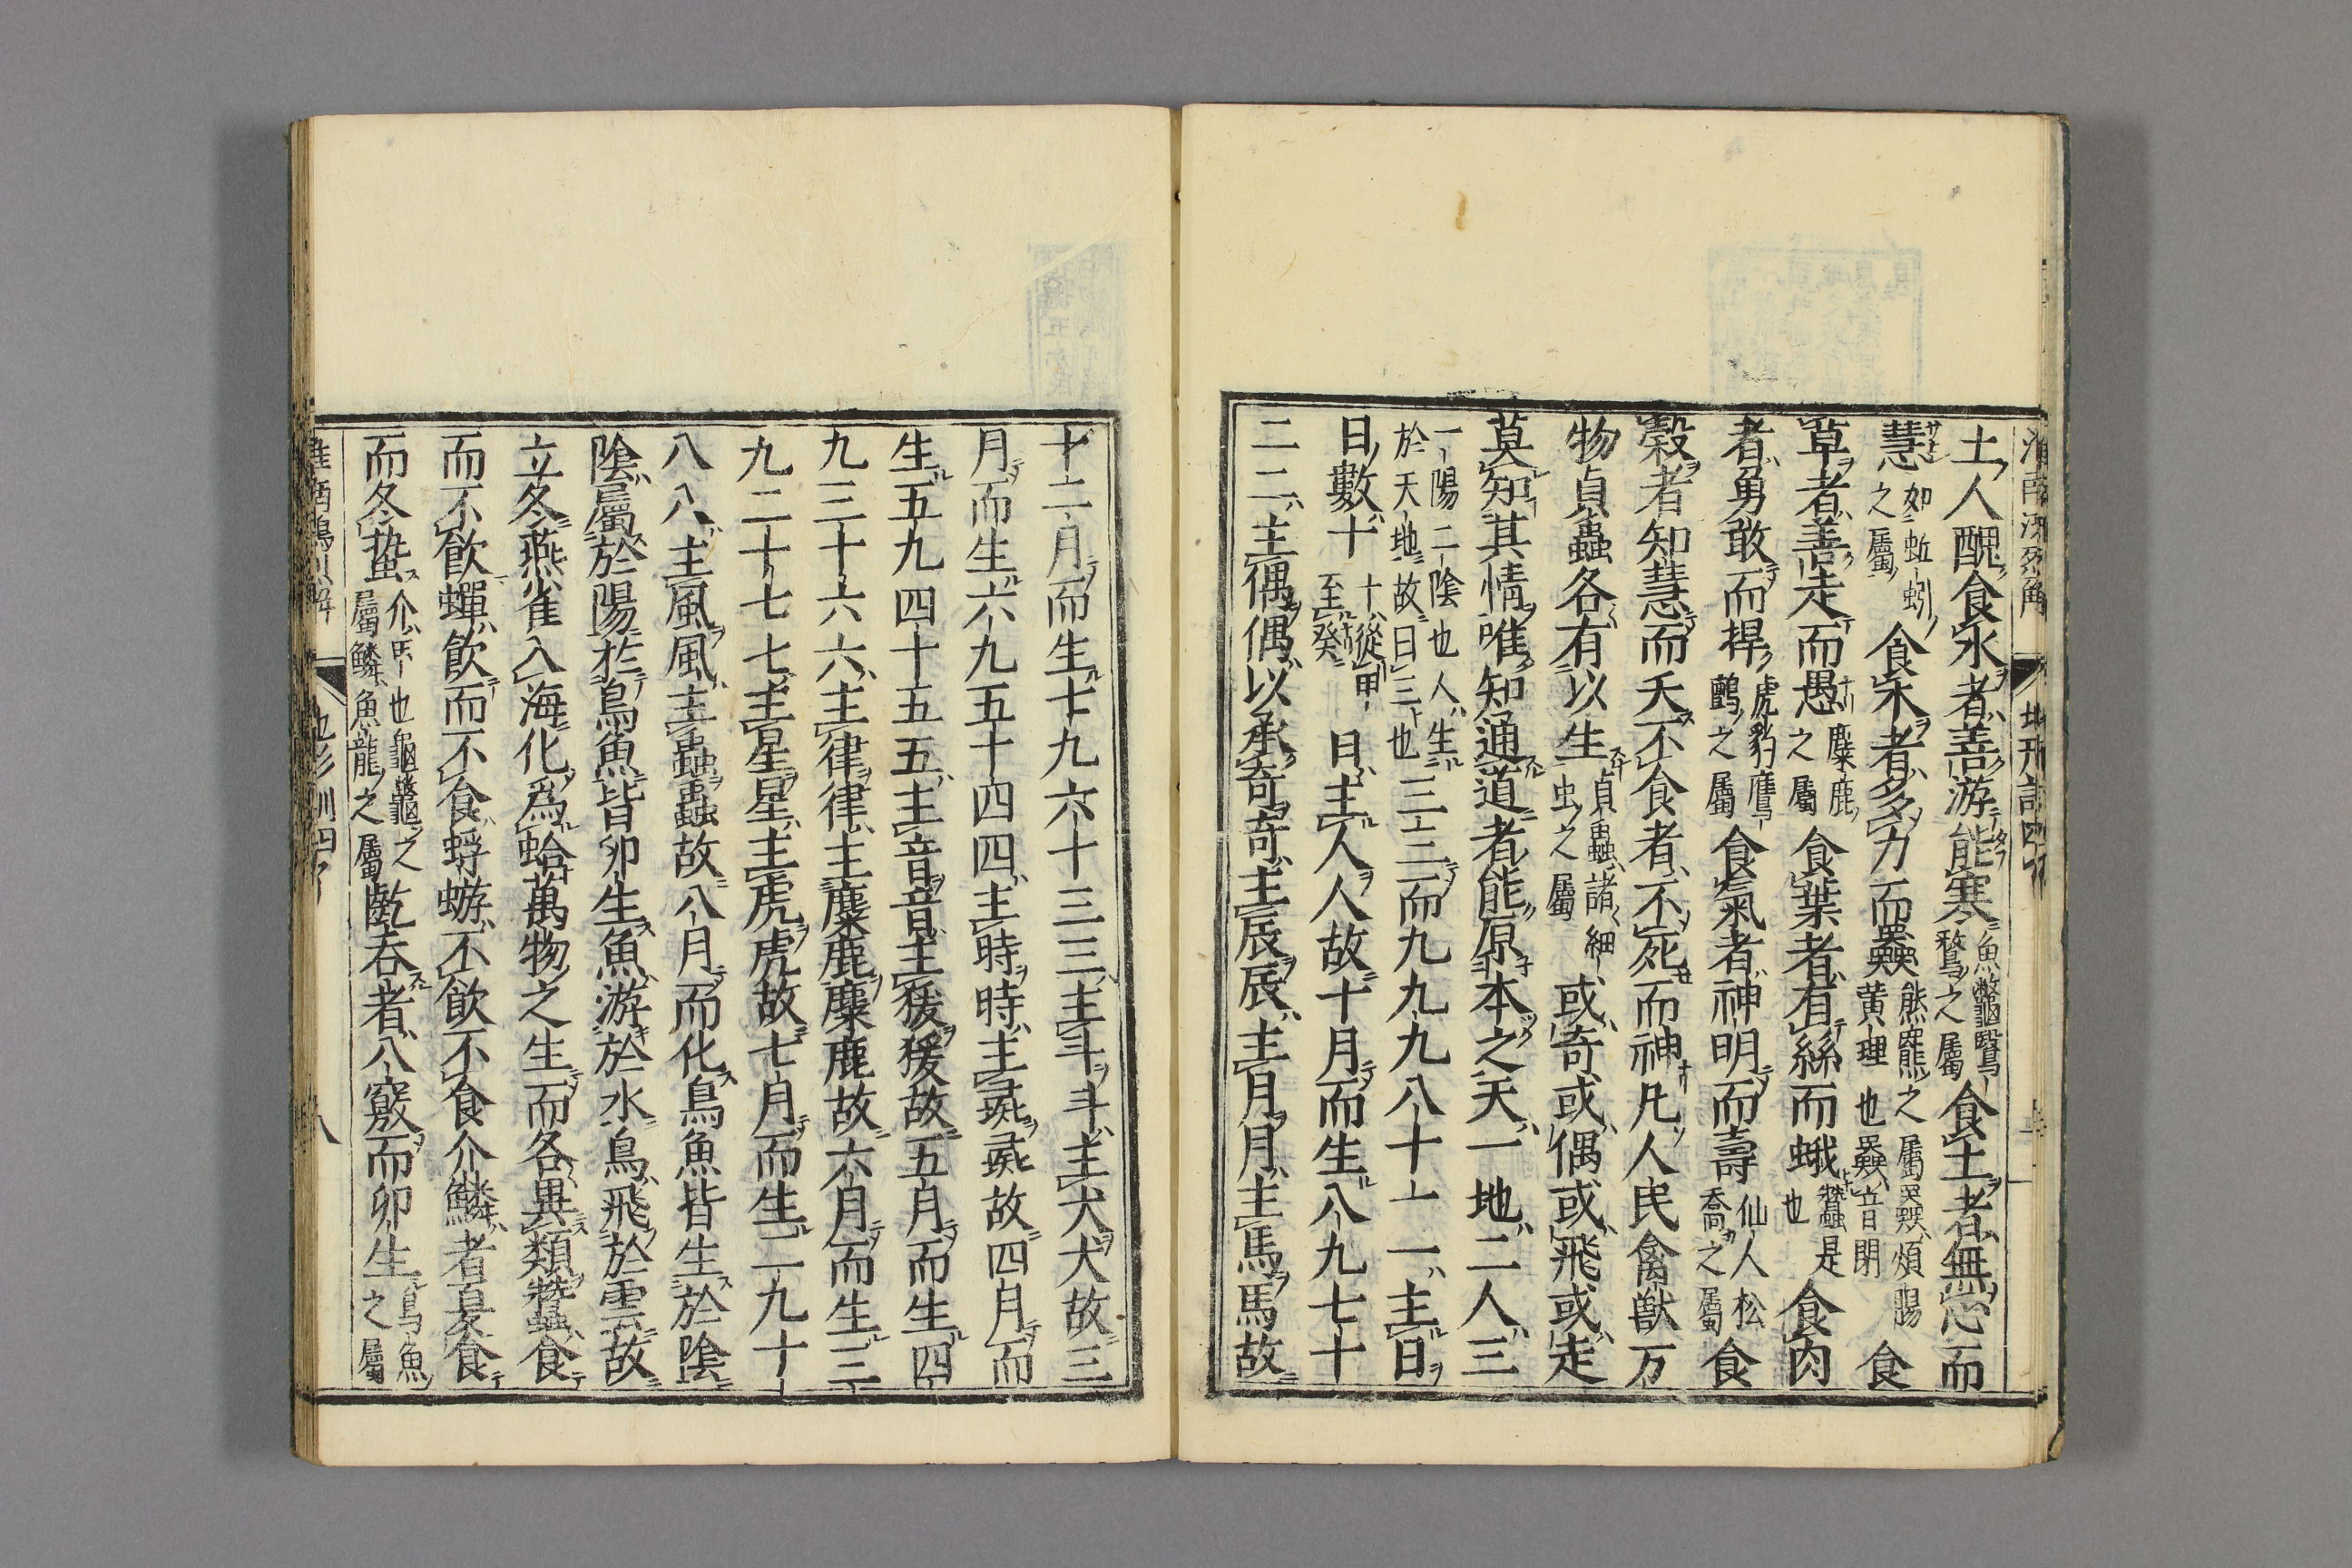 土人醜食水者善游能寒魚鼈鷖鶩之屬食土者無心而
慧如蚯蚓之屬食木者多力而奰熊羆之屬奰煩腸黃理也奰音閉食
草者善走而愚麋鹿之屬食葉者有絲而蛾蠶是也食肉
者勇敢而捍虎豹鷹鸇之屬食氣者神明而壽仙人松喬之屬食
穀者知慧而夭不食者不死而神凡人民禽獸万
物貞蟲各有以生貞蟲諸細虫之屬或奇或偶或飛或走
莫知其情唯知通道者能原本之天一地二人三
一陽二陰也人生於天地故曰三也三三而九九九八十一一主日
日數十十從甲至癸日主人人故十月而生八九七十
二二主偶偶以承奇奇主辰辰主月月主馬馬故
十二月而生七九六十三三主斗斗主犬犬故三
月而生六九五十四四主時時主彘彘故四月而
生五九四十五五主音音主猨猨故五月而生四
九三十六六主律律主麋鹿麋鹿故六月而生三
九二十七七主星星主虎虎故七月而生二九十
八八主風風主蟲蟲故八月而化鳥魚皆生於陰
陰屬於陽故鳥魚皆卵生魚游於水鳥飛於雲故
立冬燕雀入海化爲蛤萬物之生而各異類蠶食
而不飮蟬飮而不食蜉蝣不飮不食介鱗者夏食
而冬蟄介甲也龜鼈之屬鱗魚龍之屬齕吞者八竅而卵生鳥魚之屬